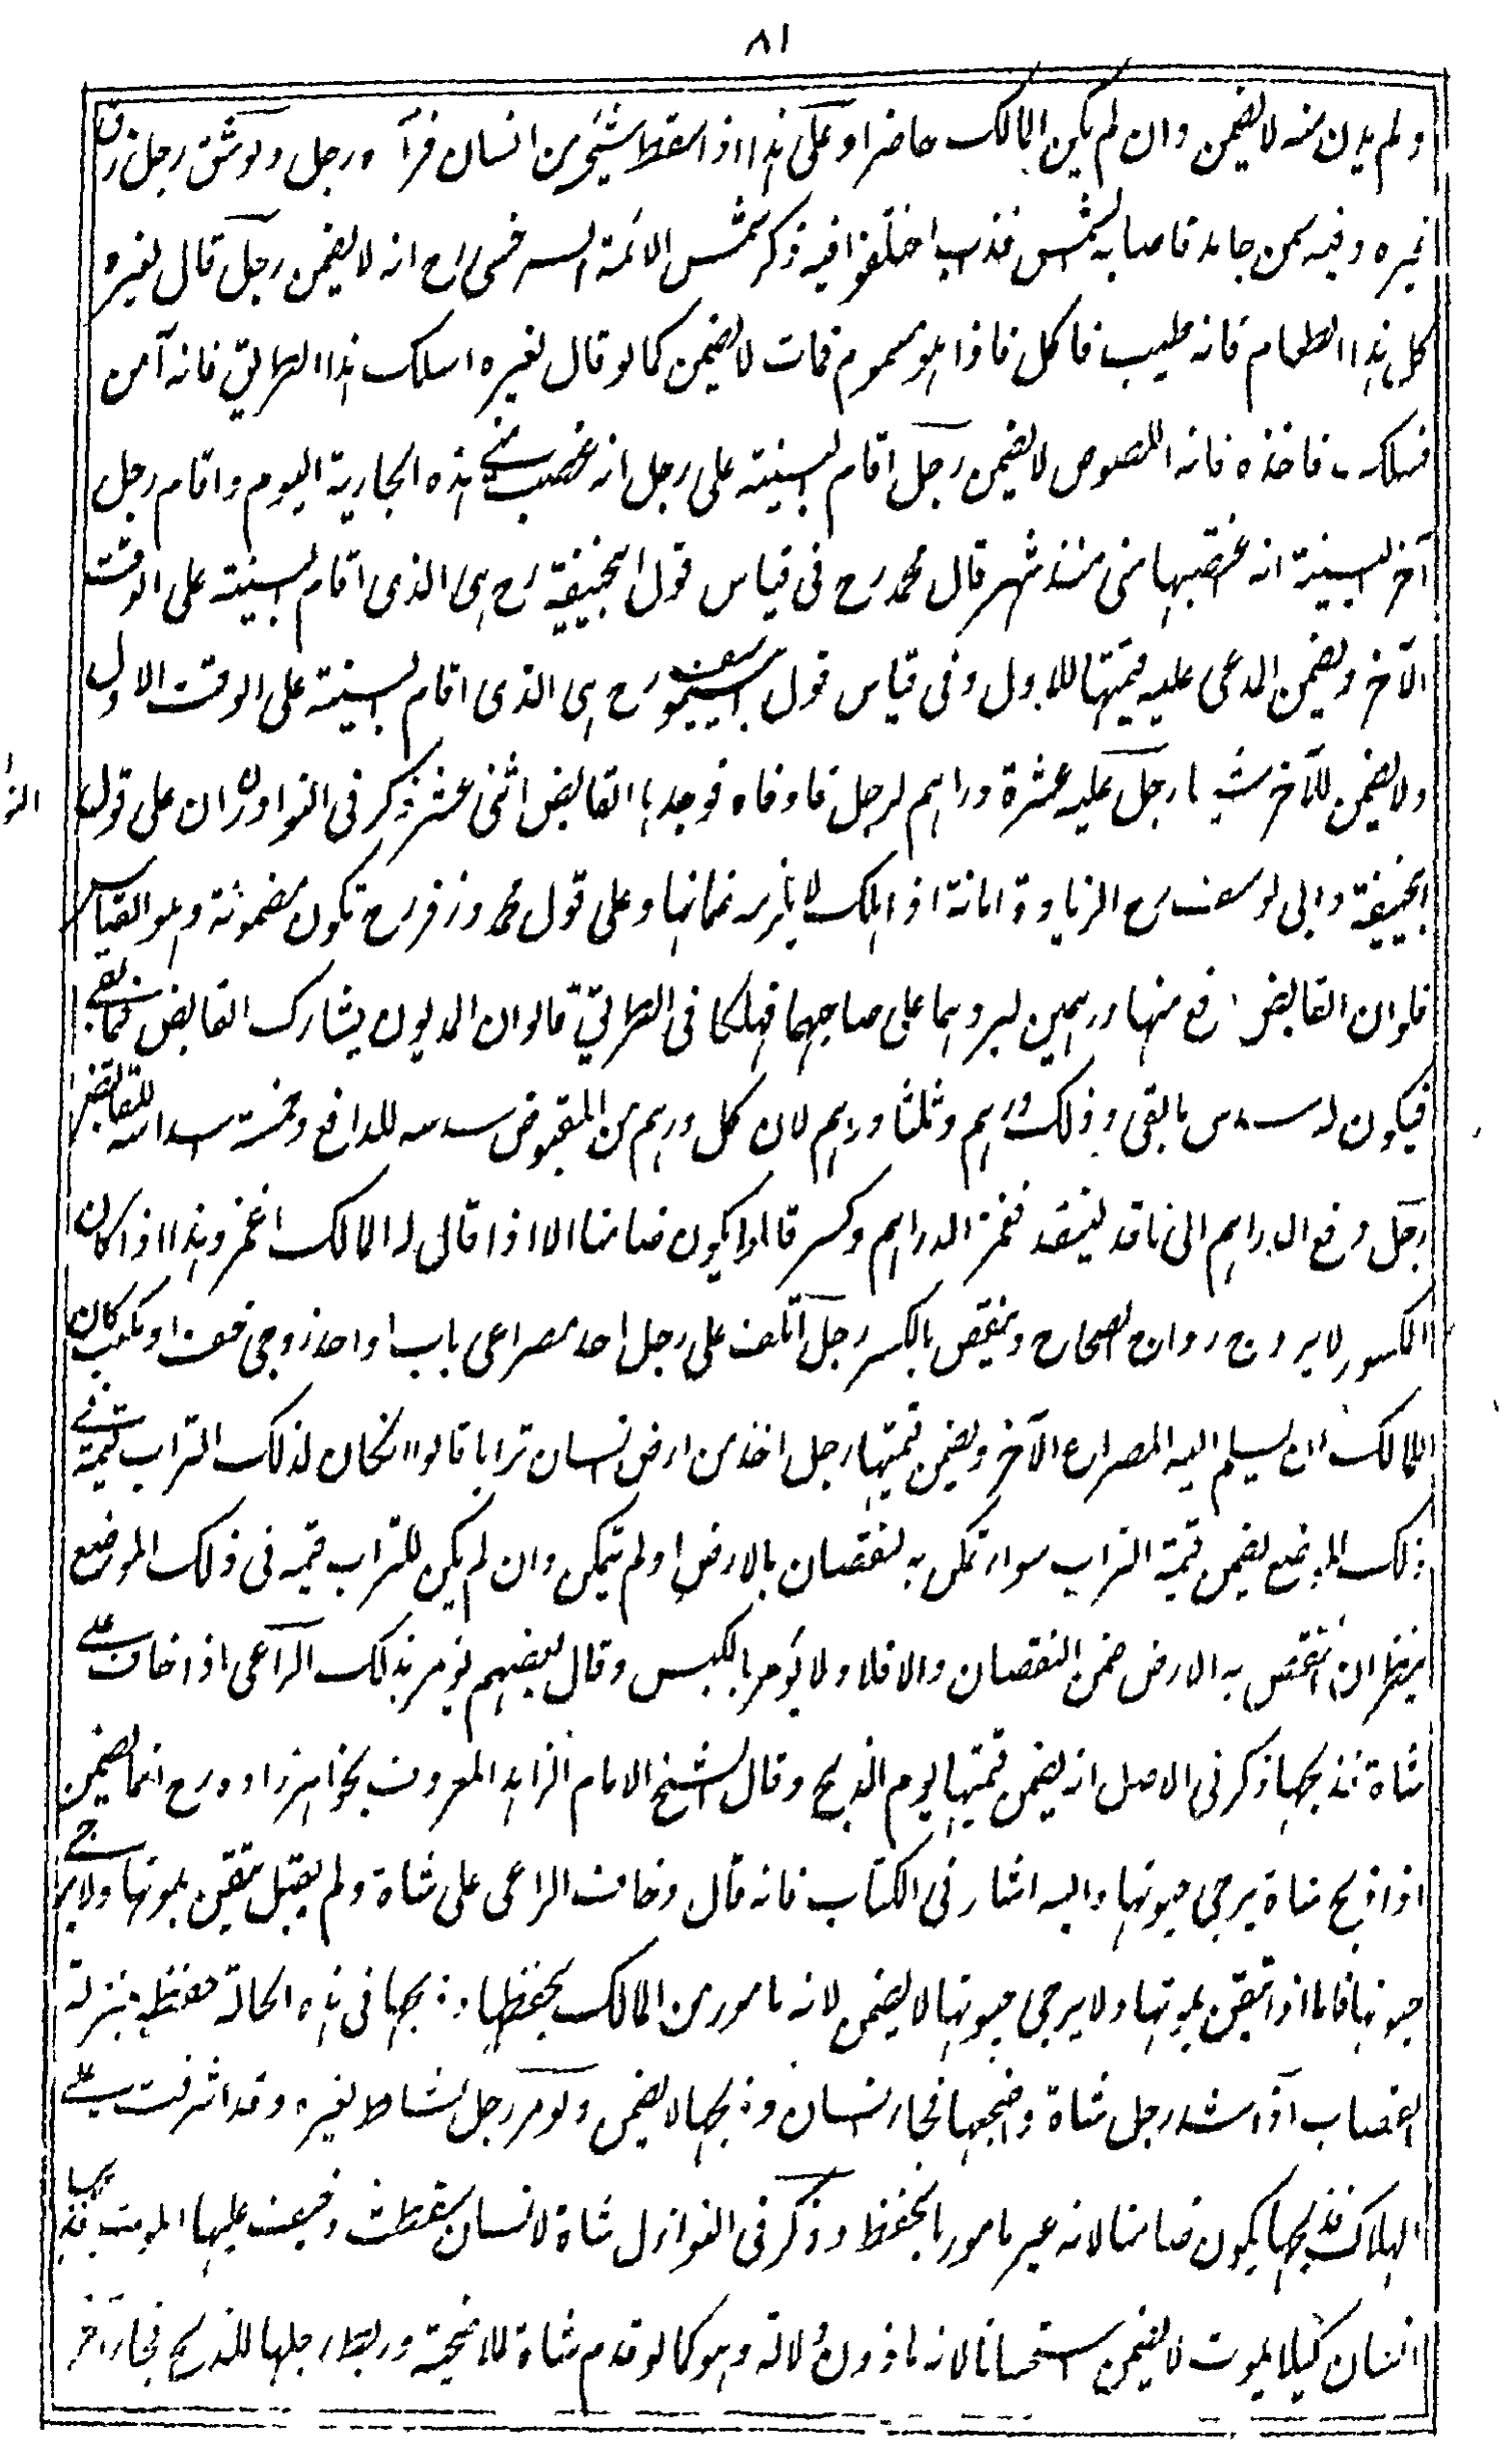 ٨١
ولم يدن منه لا يضمن وان لم يكن المالك حاضرا وعلى هذا اذا سقط شئ من انسان فرآه رجل ولو شق رجل زق
غيره وفيه سمن جامد فاصابه الشمس فذاب اختلفوا فيه ذكر شمس الائمة السرخسى رح انه لا يضمن رجل قال لغيره
كل هذا الطعام فانه طيب فاكل فاذا هو مسموم فمات لا يضمن كما لو قال لغيره اسلك هذا الطريق فانه آمن
فسلك فاخذه اللصوص لا يضمن رجل اقام البينة على رجل انه غصب منى هذه الجارية اليوم واقام رجل
آخر البينة انه غصبها منى منذ شهر قال محمد رح فى قياس قول ابيحنيفة رح هى الذى اقام البينة على الوقت
الآخر ويضمن المدعى عليه قيمتها للاول وفى قياس قول ابييوسف رح هى الذى اقام البينة على الوقت الاول
ولا يضمن للآخر شيئا رجل عليه عشرة دراهم لرجل فاوفاه فوجدها القابض اثنى عشر ذكر فى النوادر ان على قول
ابيحنيفة وابى يوسف رح الزيادة امانة اذا هلك لا يلزمه ضمانها وعلى قول محمد وزفر رح تكون مضمونة وهو القياس
فلو ان القابض دفع منها درهمين ليردهما على صاحبهما فهلكا فى الطريق قالوا ان المديون يشارك القابض فيما بقى
فيكون له سدس ما بقى وذلك درهم وثلثا درهم لان كل درهم من المقبوض سدسه للدافع وخمسة اسداسه للقابض
رجل دفع الدراهم الى ناقد لينقد فغمز الدراهم وكسر قالوا يكون ضامنا الا اذا قال له المالك اغمز وهذا اذا كان
المكسور لا يروج رواج الصحاح وينقص بالكسر رجل اتلف على رجل احد مصراعى باب او احد زوجى خف او مكعب كان
للمالك ان يسلم اليه المصراع الآخر ويضمن قيمتها رجل اخذ من ارض انسان ترابا قالوا انكان لذلك التراب قيمة فى
ذلك الموضع يضمن قيمة التراب سواء تمكن به النقصان بالارض او لم يتمكن وان لم يكن للتراب قيمة فى ذلك الموضع
ينظر ان انتقص به الارض ضمن النقصان والا فلا ولا يؤمر بالكبس وقال بعضهم يؤمر بذلك الراعى اذا خاف على
شاة فذبحها ذكر فى الاصل انه يضمن قيمتها يوم الذبح وقال الشيخ الامام الزاهد المعروف بخواهرزاده رح انما يضمن
اذا ذبح شاة يرجى حيوتها واليه اشار فى الكتاب فانه قال وخاف الراعى على شاة ولم يقل تيقن بموتها ولا يرجى
حيوتها فاما اذا تيقن بموتها ولا يرجى حيوتها لا يضمن لانه مامور من المالك بحفظها وذبحها فى هذه الحالة حفظ بمنزلة
القصاب اذا شد رجل شاة واضجعها فجاء انسان وذبحها لا يضمن ولو مر رجل بشاة لغيره وقد اشرفت على
الهلاك فذبحها يكون ضامنا لانه غير مامور بالحفظ وذكر فى النوازل شاة لانسان سقطت وخيف عليها الموت فذبحها
انسان كيلا يموت لا يضمن استحسانا لانه ماذون دلالة وهو كما لو قدم شاة للاضحية وربط رجلها للذبح فجاء آخر